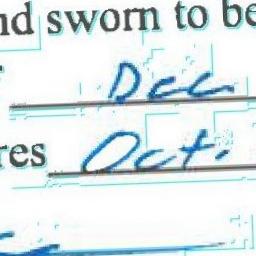 nd sworn to be
Dec
res Oct.